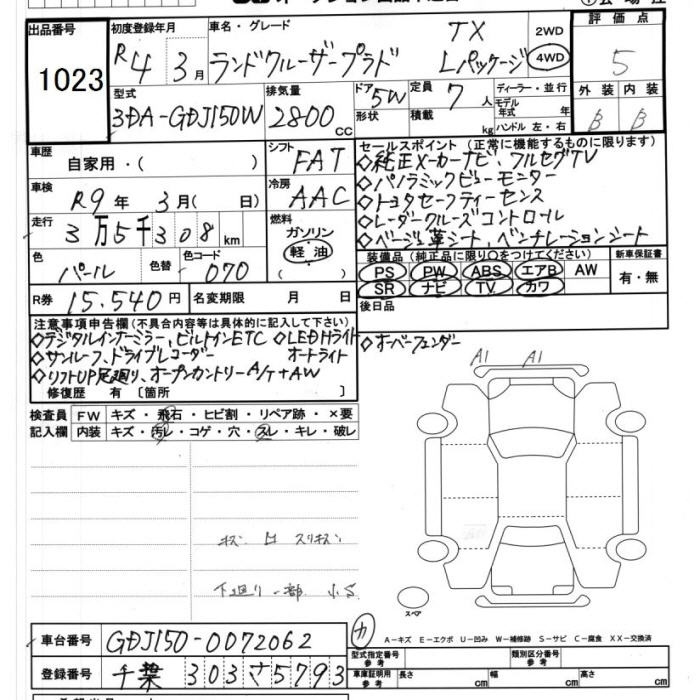 出品番号 初度登録年月 車名・グレード TX 2WD 評価点
1023 R4年 3月 ランドクルーザープラド Lパッケージ 4WD 5
型式 排気量 ドア 5W 定員 7人 ディーラー・並行 外装 内装
3DA-GDJ150W 2800cc 形状 積載 kg モデル年式 年 B B
ハンドル 左・右
車歴 自家用・( ) シフト FAT セールスポイント(正常に機能するものに限ります)
◇純正メーカーナビ、フルセグTV
車検 R9年 3月( 日) 冷房 AAC ◇パノラミックビューモニター
◇トヨタセーフティーセンス
走行 3万5千308km 燃料 ガソリン 軽油 ◇レーダークルーズコントロール
◇ベージュ革シート、ベンチレーションシート
色 パール 色替 色コード 070 装備品(純正品に限り○をつけてください) 新車保証書
PS PW ABS エアB AW 有・無
SR ナビ TV カワ
R券 15,540円 名変期限 月 日 後日品
注意事項申告欄(不具合内容等は具体的に記入して下さい)
◇デジタルインナーミラー、ビルトインETC ◇LEDHライト ◇オーバーフェンダー
◇サンルーフ、ドライブレコーダー オートライト
◇リフトUP足廻り、オープンカントリーA/T+AW
修復歴 有 〔箇所 〕
A1 A1
検査員 FW キズ・飛石・ヒビ割・リペア跡・×要
記入欄 内装 キズ・汚レ・コゲ・穴・スレ・キレ・破レ
下廻り一部 小S
スペア
車台番号 GDJ150-0072062 カ A−キズ E−エクボ U−凹み W−補修跡 S−サビ C−腐食 XX−交換済
型式指定番号 参考 類別区分番号 参考
登録番号 千葉 303 さ 5793 車庫証明用 参考 長さ cm 幅 cm 高さ cm